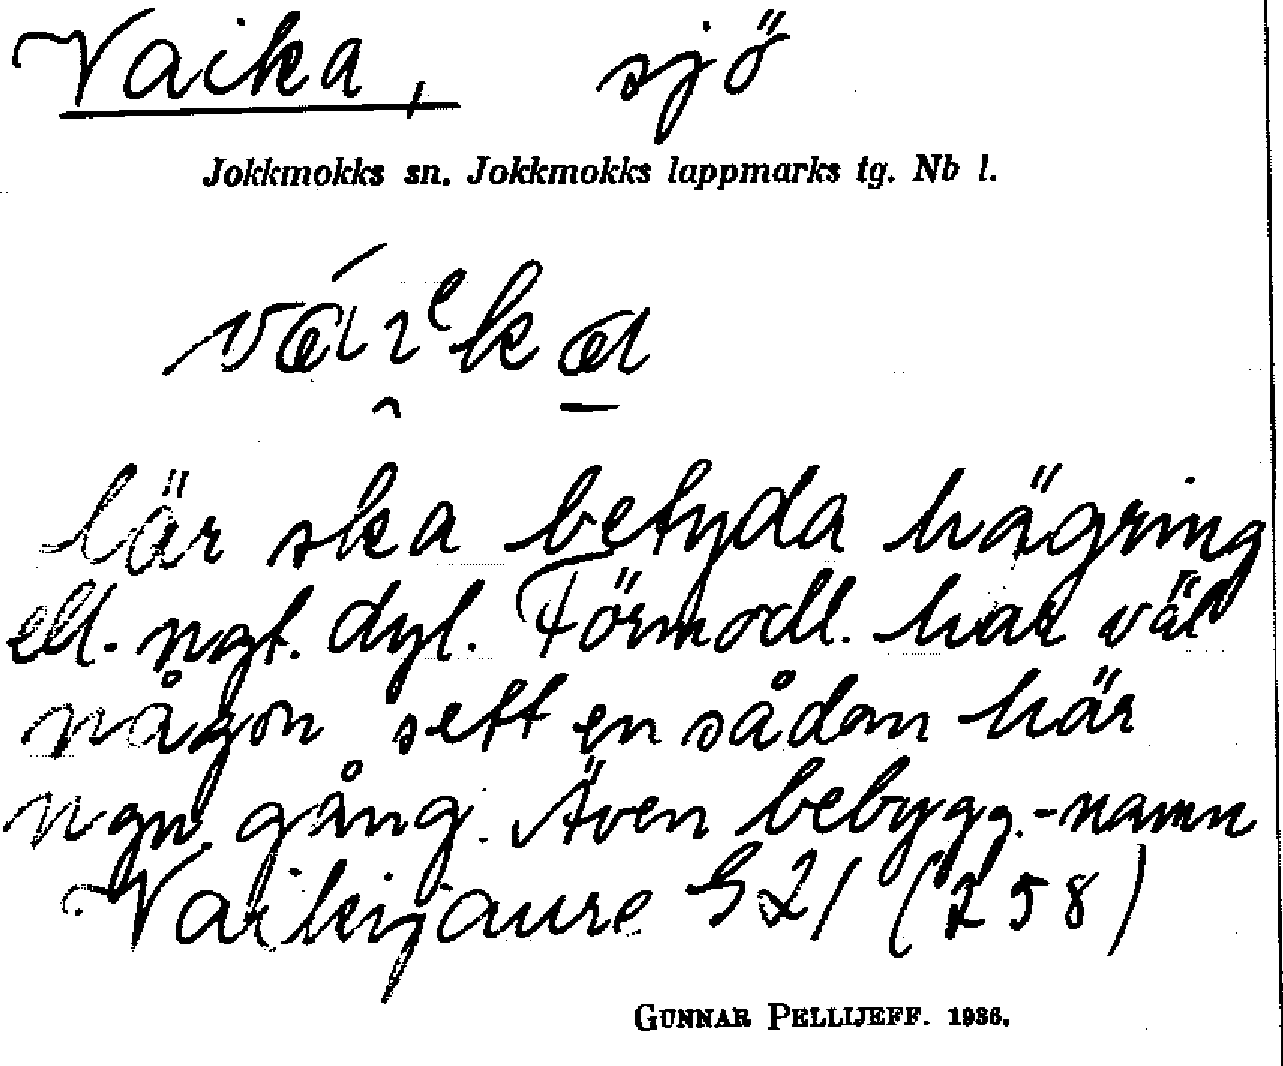 Vaika, sjö
Jokkmokks sn. Jokkmokks lappmarks tg. Nb l.
lär ska betyda hägring
ell. ngt. dyl. Förmodl. har väl
någon sett en sådan här
ngn gång. Även bebygg.-namn
Vaikijaure 521 (258)
GUNNAR PELLIJEFF. 1936.